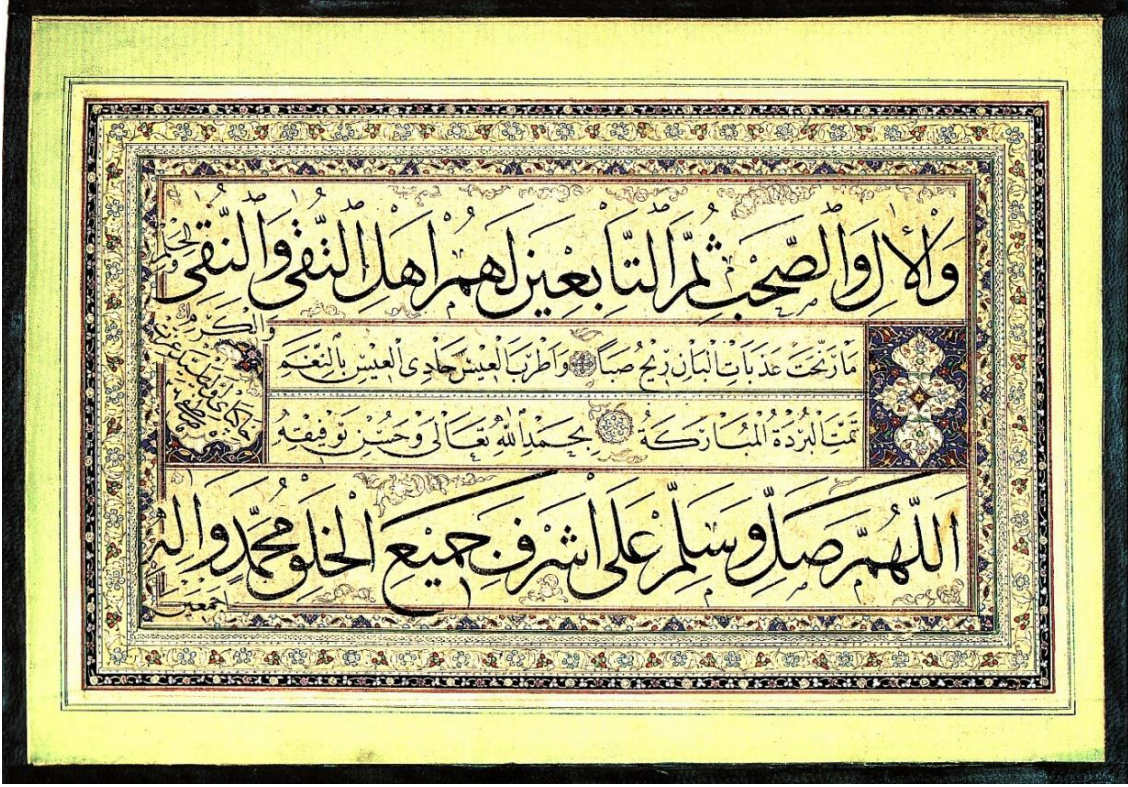 وَالْاٰلِ وَالصَّحْبِ ثُمَّ التَّابِعِينَ لَهُمْ اَهْلِ التُّقٰى وَالنُّقٰى وَالْحِلْمِ
وَالْكَرَمِ
مَا رَنَّحَتْ عَذَبَاتِ الْبَانِ رِيحُ صَبًا وَاَطْرَبَ الْعِيسَ حَادِى الْعِيسِ بِالنَّغَمِ
تَمَّتِ الْبُرْدَةُ الْمُبَارَكَةُ بِحَمْدِ اللّٰهِ تَعَالٰى وَحُسْنِ تَوْفِيقِهِ
اَللّٰهُمَّ صَلِّ وَسَلِّمْ عَلٰى اَشْرَفِ جَمِيعِ الْخَلْقِ مُحَمَّدٍ وَاٰلِهِ
اجمعين